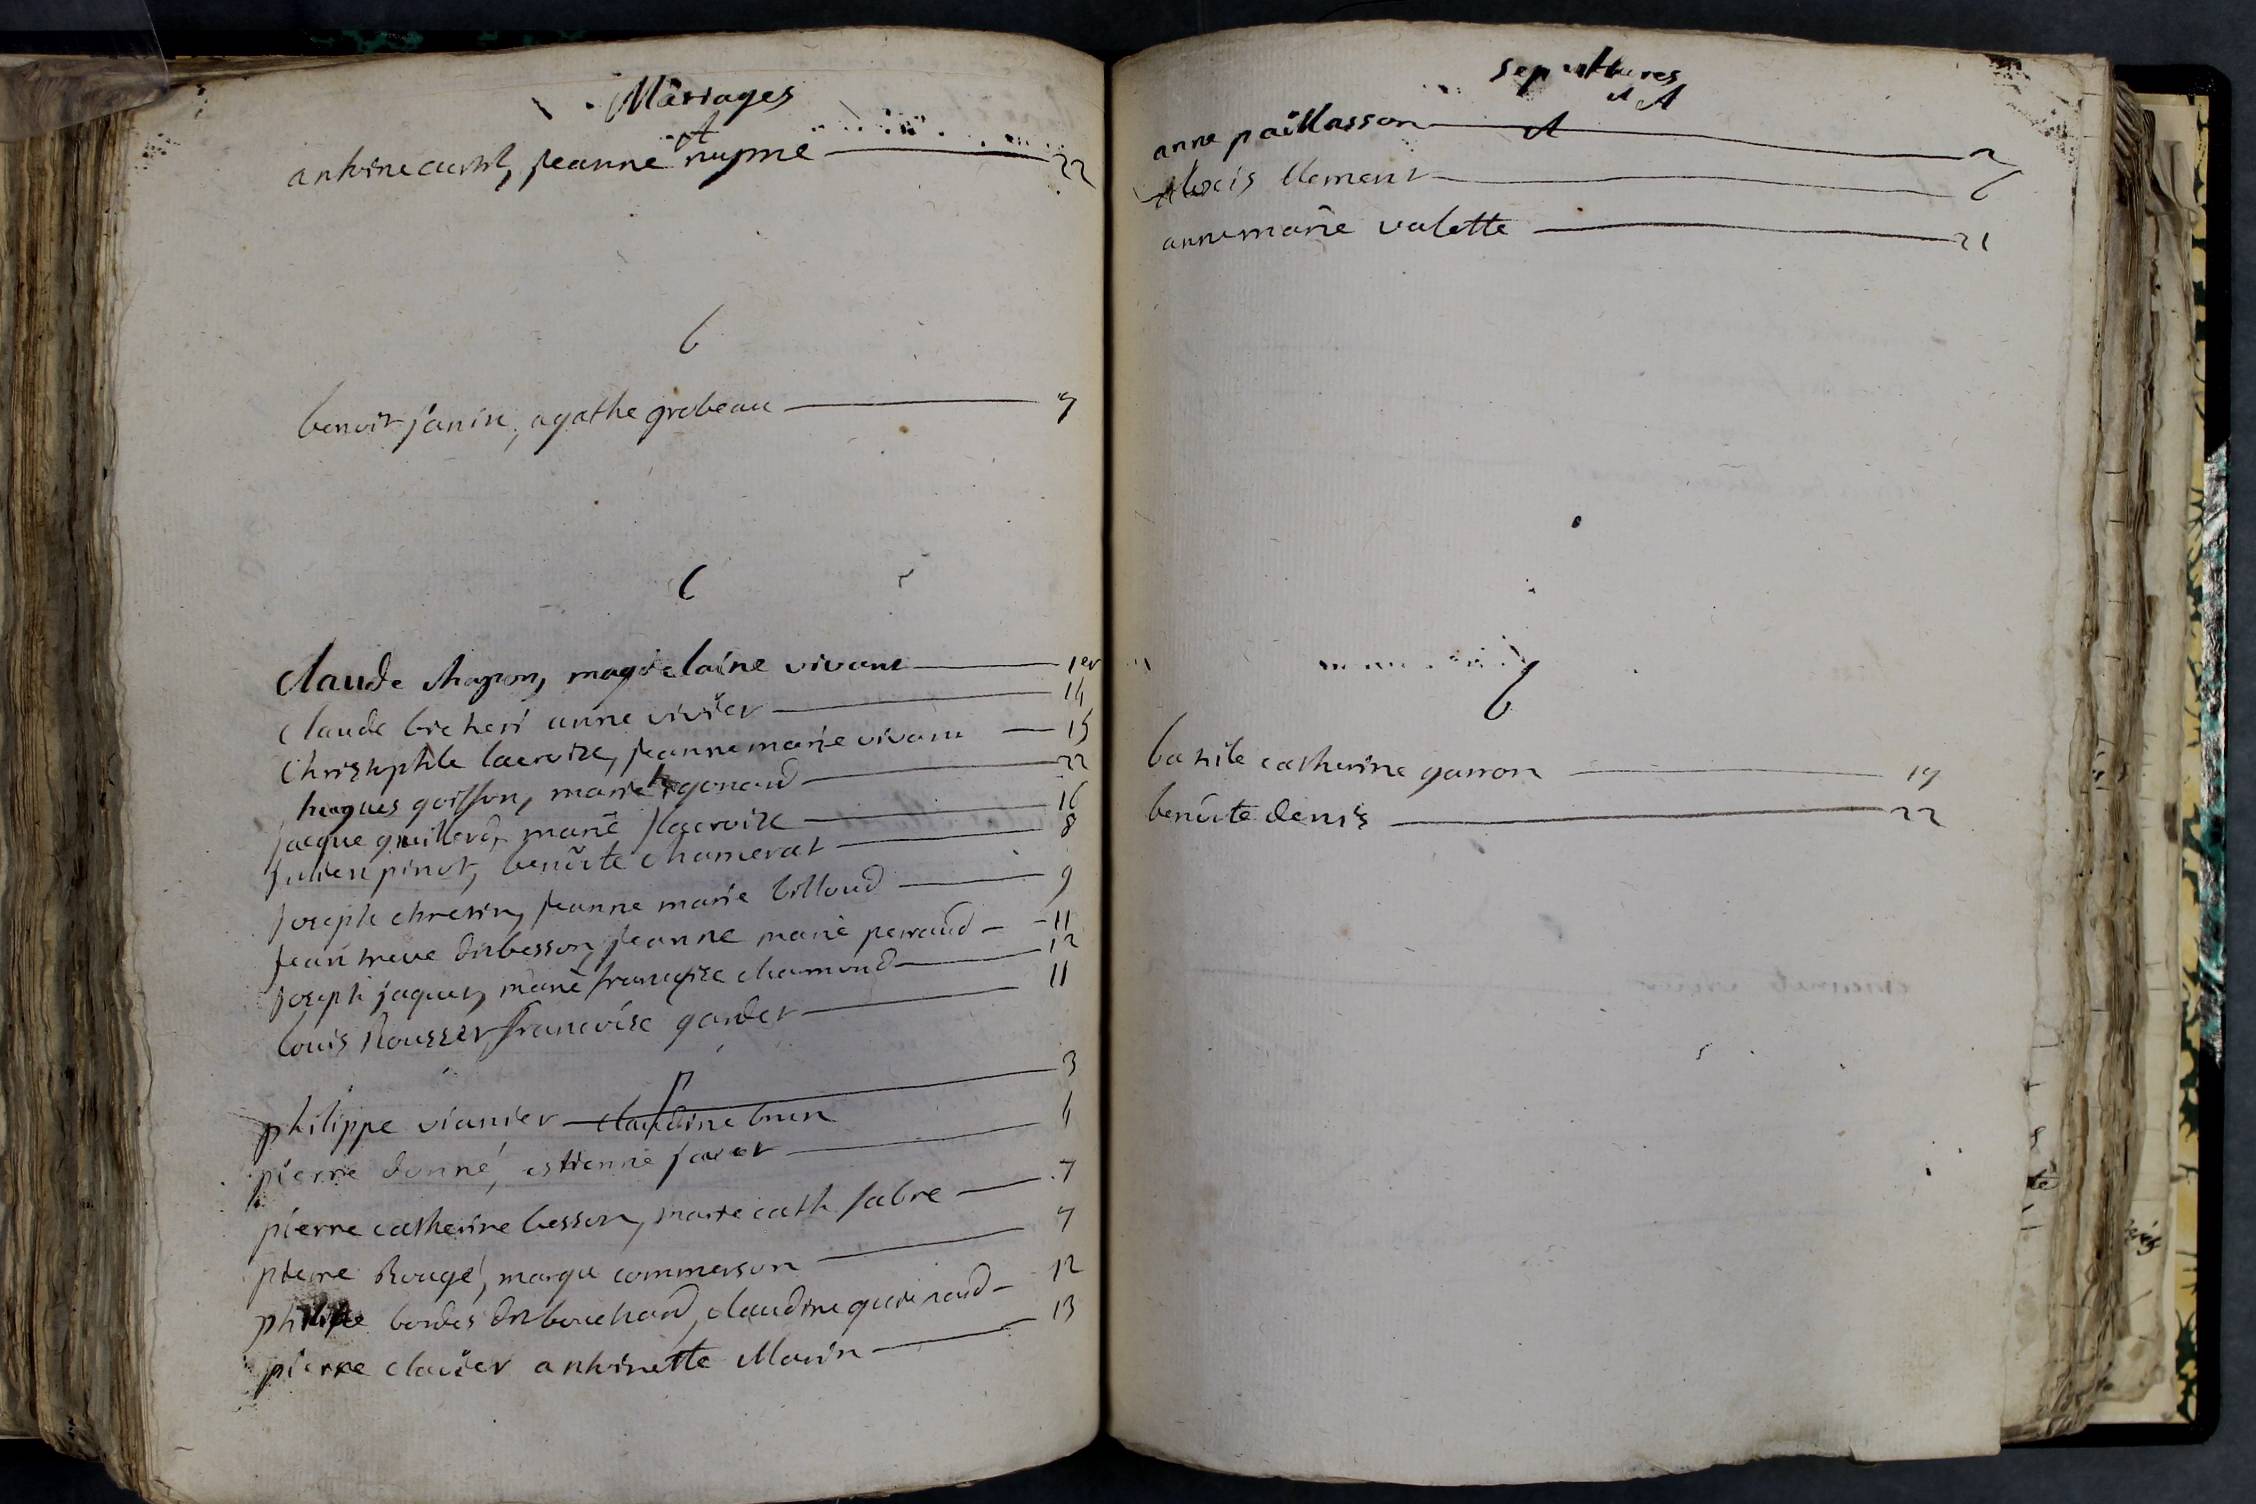 Mariages
A
antoine curtil, jeanne nuyme 22
b
benoit janin, agathe grobeau 7
C
Claude chapon, magdelaine vivant 1er
Claude bicheri anne vivier 14
Christophle lacroize, jeanne marie vivant 15
hugues goiffon, marie gonaud 22
jacque guillerd, marie lacroize 16
julien pinot, benoite chamerat 8
joseph chretin, jeanne marie billoud 9
jean treve dit besson, jeanne marie perraud 11
joseph jaquet, marie françoise chamond 12
Louis Rousset françoise gardet 11
p
philippe vianier claudine brun 3
pierre donné, estienne favet 6
pierre catherine besson, marie cath fabre 7
pierre Rougé, margu commerson 7
philippe bordes dit bouchard, claudine guirenaud 12
pierre clauier antoinette Morin 13
sepultures
A
anne paillasson 2
Alexis Clement 6
anne marie valette 21
b
basile catherine garron 19
benoite denis 22